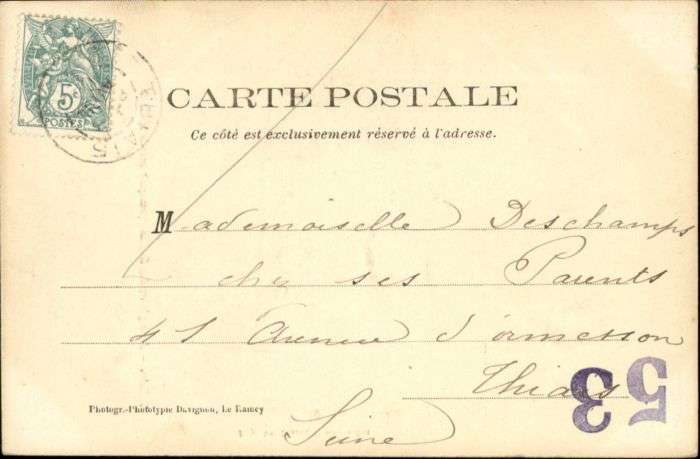 5c
POSTES
CARTE POSTALE
Ce côté est exclusivement réservé à l'adresse.
Mademoiselle Deschamps
chez ses Parents
41 Avenue d'ormesson
Thiais
Seine
53
Photogr.-Phototypie Davignon, Le Raincy